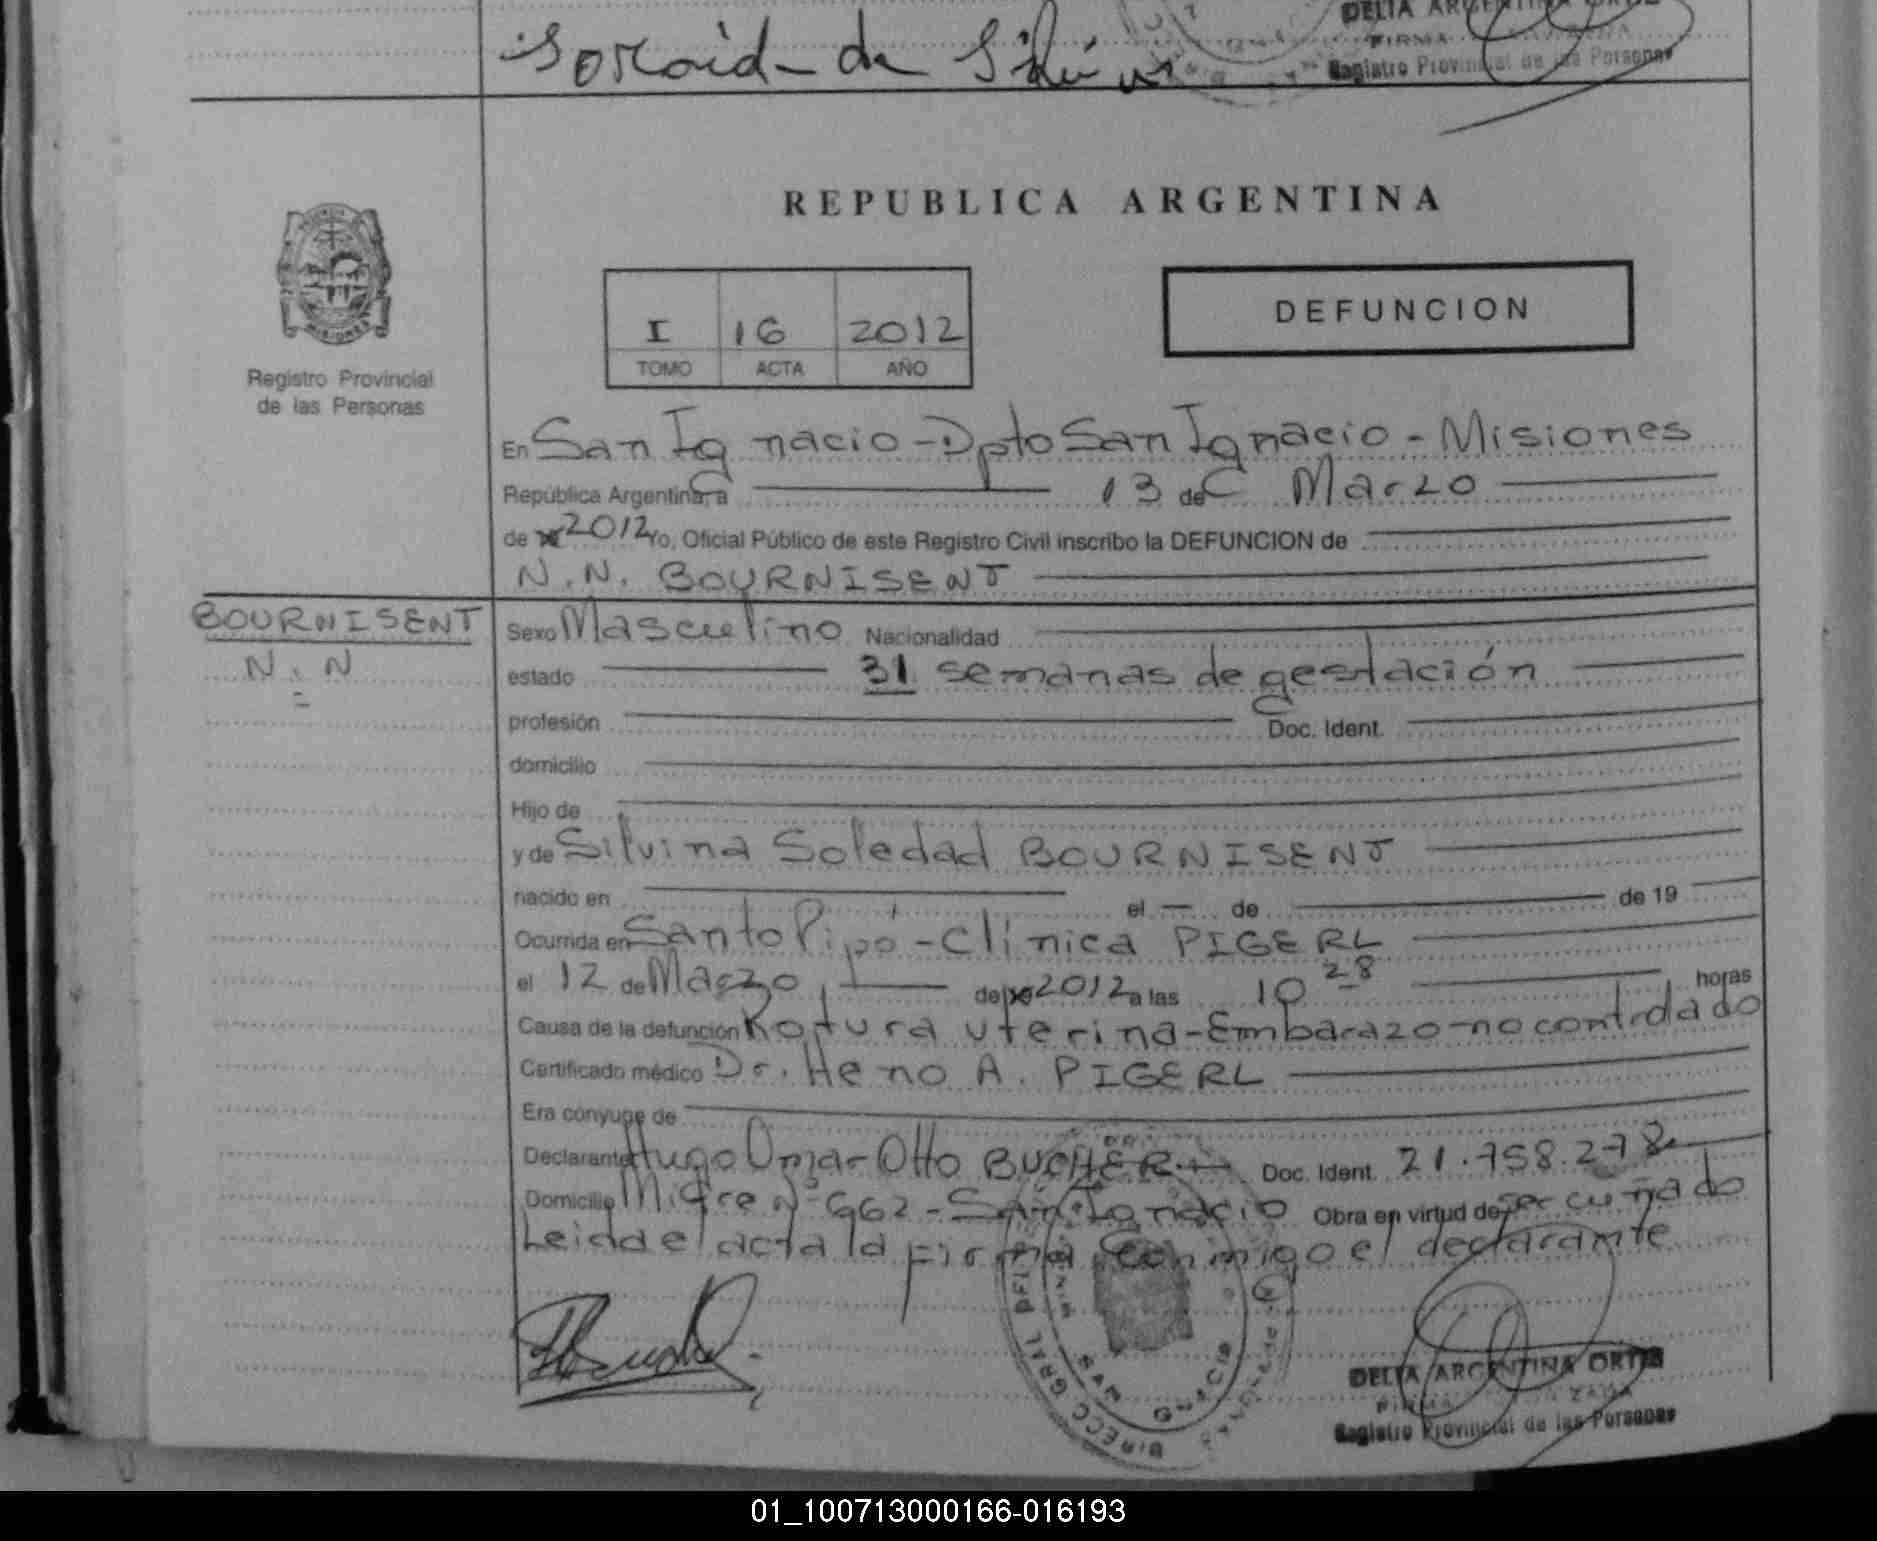 DELIA ARGENTINA ORTIZ
FIRMA
Registro Provincial de las Personas
REPUBLICA ARGENTINA
I 16 2012
TOMO ACTA AÑO
DEFUNCION
MISIONES
Registro Provincial
de las Personas
En San Ignacio - Dpto San Ignacio - Misiones
República Argentina, a 13 de Marzo
de 2012 Yo, Oficial Público de este Registro Civil inscribo la DEFUNCION de
N.N. BOURNISENT
BOURNISENT
N.N
Sexo Masculino Nacionalidad
estado 31 semanas de gestación
profesión Doc. Ident.
domicilio
Hijo de
y de Silvina Soledad BOURNISENT
nacido en el — de de 19
Ocurrida en Santo Pipó - Clínica PIGERL
el 12 de Marzo de 2012 a las 10 28 horas
Causa de la defunción Rotura uterina - Embarazo no controlado
Certificado médico Dr. Heno A. PIGERL
Era cónyuge de
Declarante Hugo Omar Otto BUCHER Doc. Ident. 21.758.278
Domicilio Mitre Nº 662 - San Ignacio Obra en virtud de ser cuñado
Leida el acta la firma conmigo el declarante
DIRECC GRAL
DELIA ARGENTINA ORTIZ
FIRMA
Registro Provincial de las Personas
01_100713000166-016193